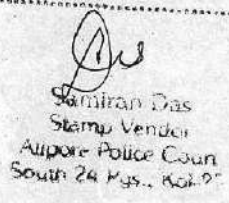 Samiran Das
Stamp Vendor
Alipore Police Court
South 24 Pgs., Kol-27